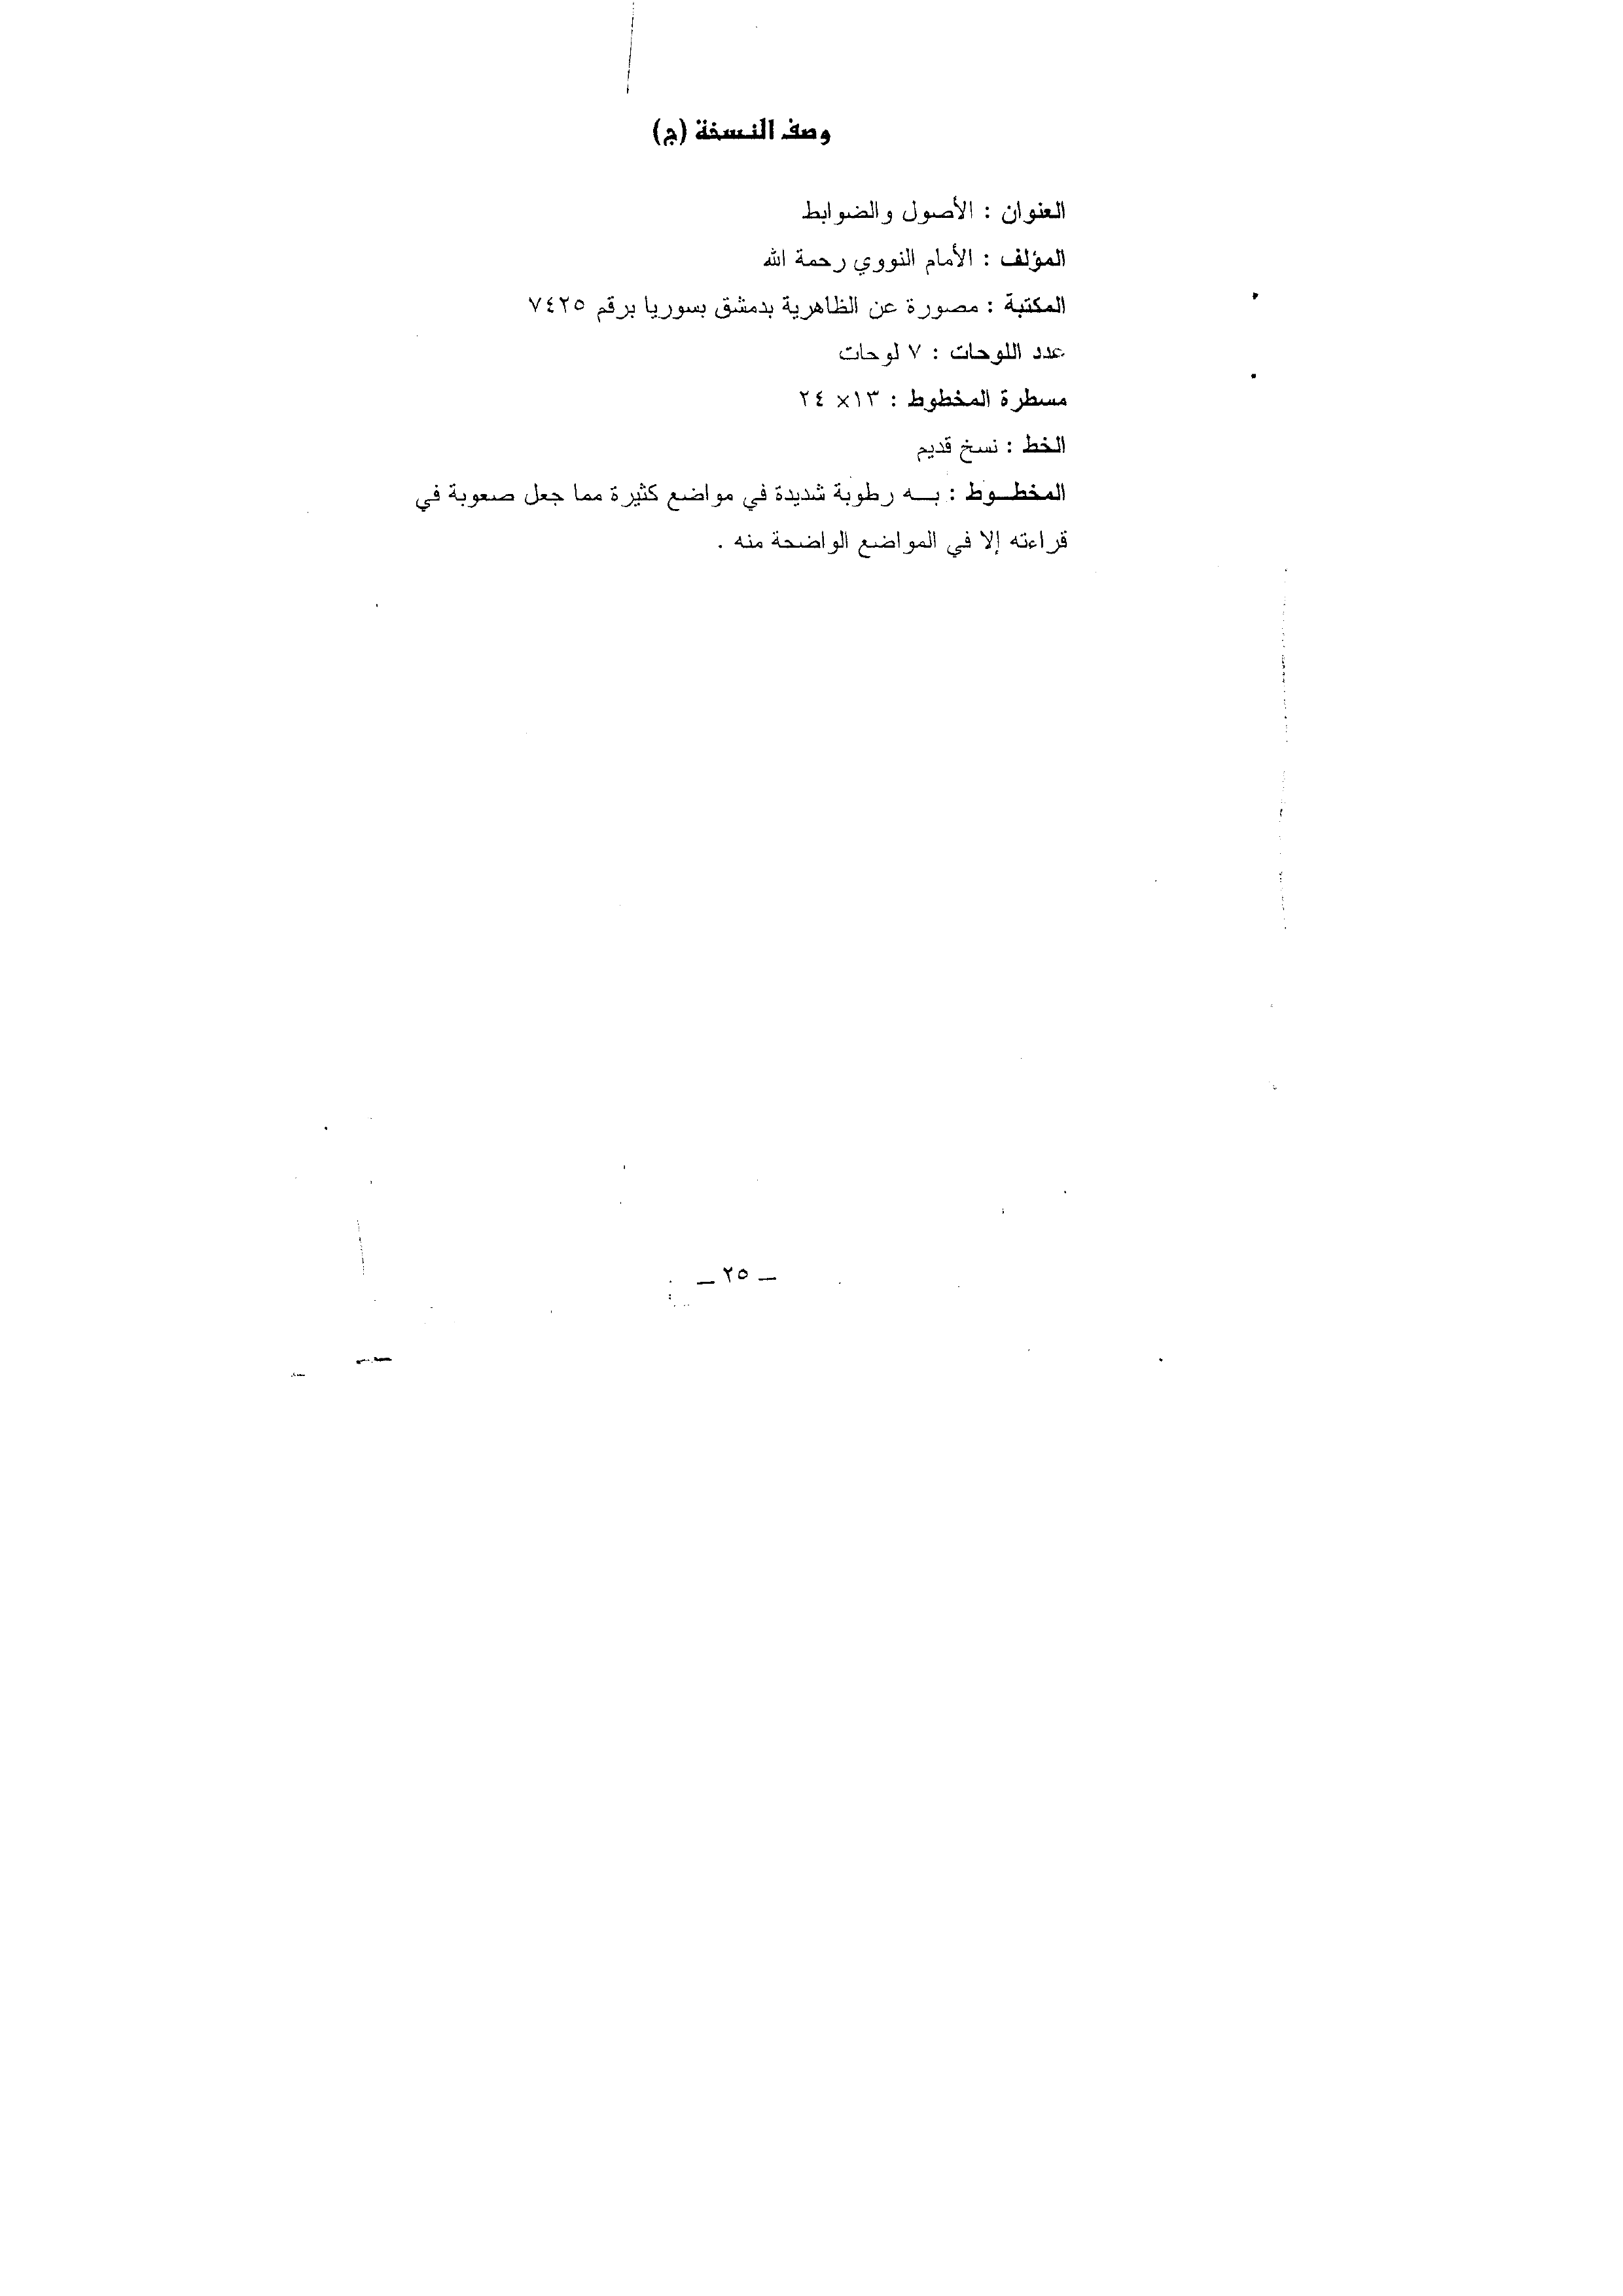 وصف النسخة (ج)
العنوان : الأصول والضوابط
المؤلف : الأمام النووي رحمة الله
المكتبة : مصورة عن الظاهرية بدمشق بسوريا برقم ٧٤٢٥
عدد اللوحات : ٧ لوحات
مسطرة المخطوط : ١٣× ٢٤
الخط : نسخ قديم
المخطــوط : بــه رطوبة شديدة في مواضع كثيرة مما جعل صعوبة في
قراءته إلا في المواضع الواضحة منه .
ــ ٢٥ ــ